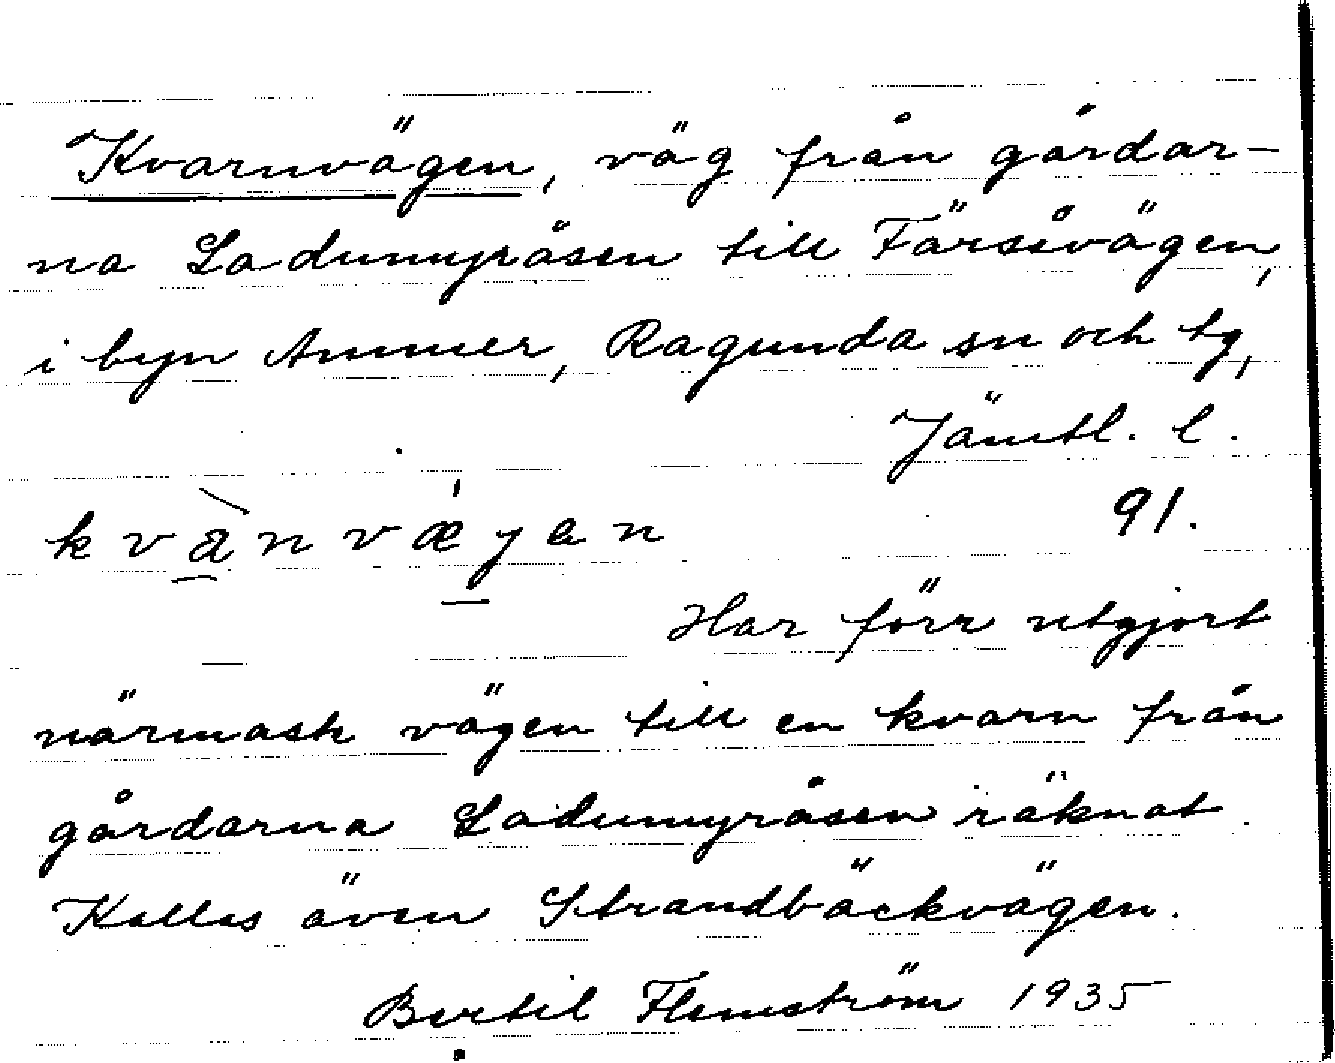 Kvarnvägen, väg från gårdar-
na Ladumyråsen till Färsåvägen,
i byn Ammer, Ragunda sn och tg,
Jämtl. l.
kvànvǽjen
91.
Har förr utgjort
närmash vägen till en kvarn från
gårdarna Ladumyråsen räknat.
Kallas även Strandbäckvägen.
Bertil Flemström 1935